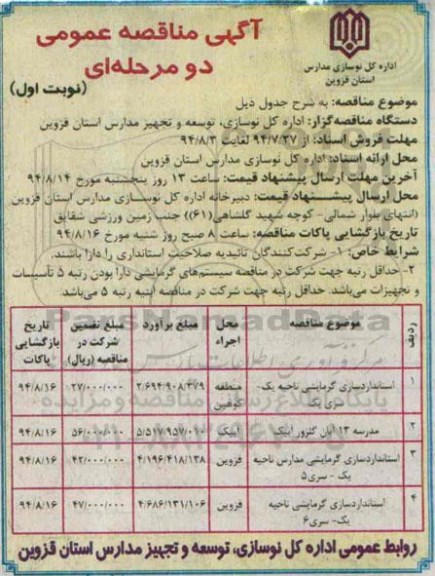 آگهی مناقصه عمومی
دو مرحله‌ای
(نوبت اول)
اداره کل نوسازی مدارس
استان قزوین
موضوع مناقصه: به شرح جدول ذیل
دستگاه مناقصه‌گزار: اداره کل نوسازی، توسعه و تجهیز مدارس استان قزوین
مهلت فروش اسناد: از ۹۴/۷/۲۷ لغایت ۹۴/۸/۳
محل ارائه اسناد: اداره کل نوسازی مدارس استان قزوین
آخرین مهلت ارسال پیشنهاد قیمت: ساعت ۱۳ روز پنجشنبه مورخ ۹۴/۸/۱۴
محل ارسال پیشنهاد قیمت: دبیرخانه اداره کل نوسازی مدارس استان قزوین
(انتهای بلوار شمالی- کوچه شهید گلشاهی(۶۱)) جنب زمین ورزشی شقایق
تاریخ بازگشایی پاکات مناقصه: ساعت ۸ صبح روز شنبه مورخ ۹۴/۸/۱۶
شرایط خاص: ۱- شرکت‌کنندگان تائیدیه صلاحیت استانداری را دارا باشند.
۲- حداقل رتبه جهت شرکت در مناقصه سیستم‌های گرمایشی دارا بودن رتبه ۵ تأسیسات
و تجهیزات می‌باشد. حداقل رتبه جهت شرکت در مناقصه ابنیه رتبه ۵ می‌باشد.
ردیف موضوع مناقصه محل اجراء مبلغ برآورد مبلغ تضمین شرکت در مناقصه (ریال) تاریخ بازگشایی پاکات
۱ استانداردسازی گرمایشی ناحیه یک- سری یک منطقه کوهین ۲/۶۹۴/۹۰۸/۳۷۹ ۲۷/۰۰۰/۰۰۰ ۹۴/۸/۱۶
۲ مدرسه ۱۳ آبان گازور آبیک آبیک ۵/۵۱۷/۹۵۷/۰۱۰ ۵۶/۰۰۰/۰۰۰ ۹۴/۸/۱۶
۳ استانداردسازی گرمایشی مدارس ناحیه یک - سری۵ قزوین ۴/۱۹۶/۴۱۸/۱۳۸ ۴۲/۰۰۰/۰۰۰ ۹۴/۸/۱۶
۴ استانداردسازی گرمایشی ناحیه یک- سری۶ قزوین ۴/۶۸۶/۱۳۱/۱۰۶ ۴۷/۰۰۰/۰۰۰ ۹۴/۸/۱۶
ParsNamadData
روابط عمومی اداره کل نوسازی، توسعه و تجهیز مدارس استان قزوین